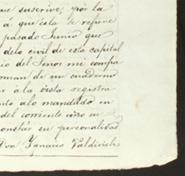 que suscrive, por la
á que ésta se refiere
pasado Junio que
delo civil de esta capital
io del Señor mi compa
man de un cuaderno
r a la vista registra
nto alo mandado en
del corriente año
onstar su personalidad
Don Ignacio Valdivielso